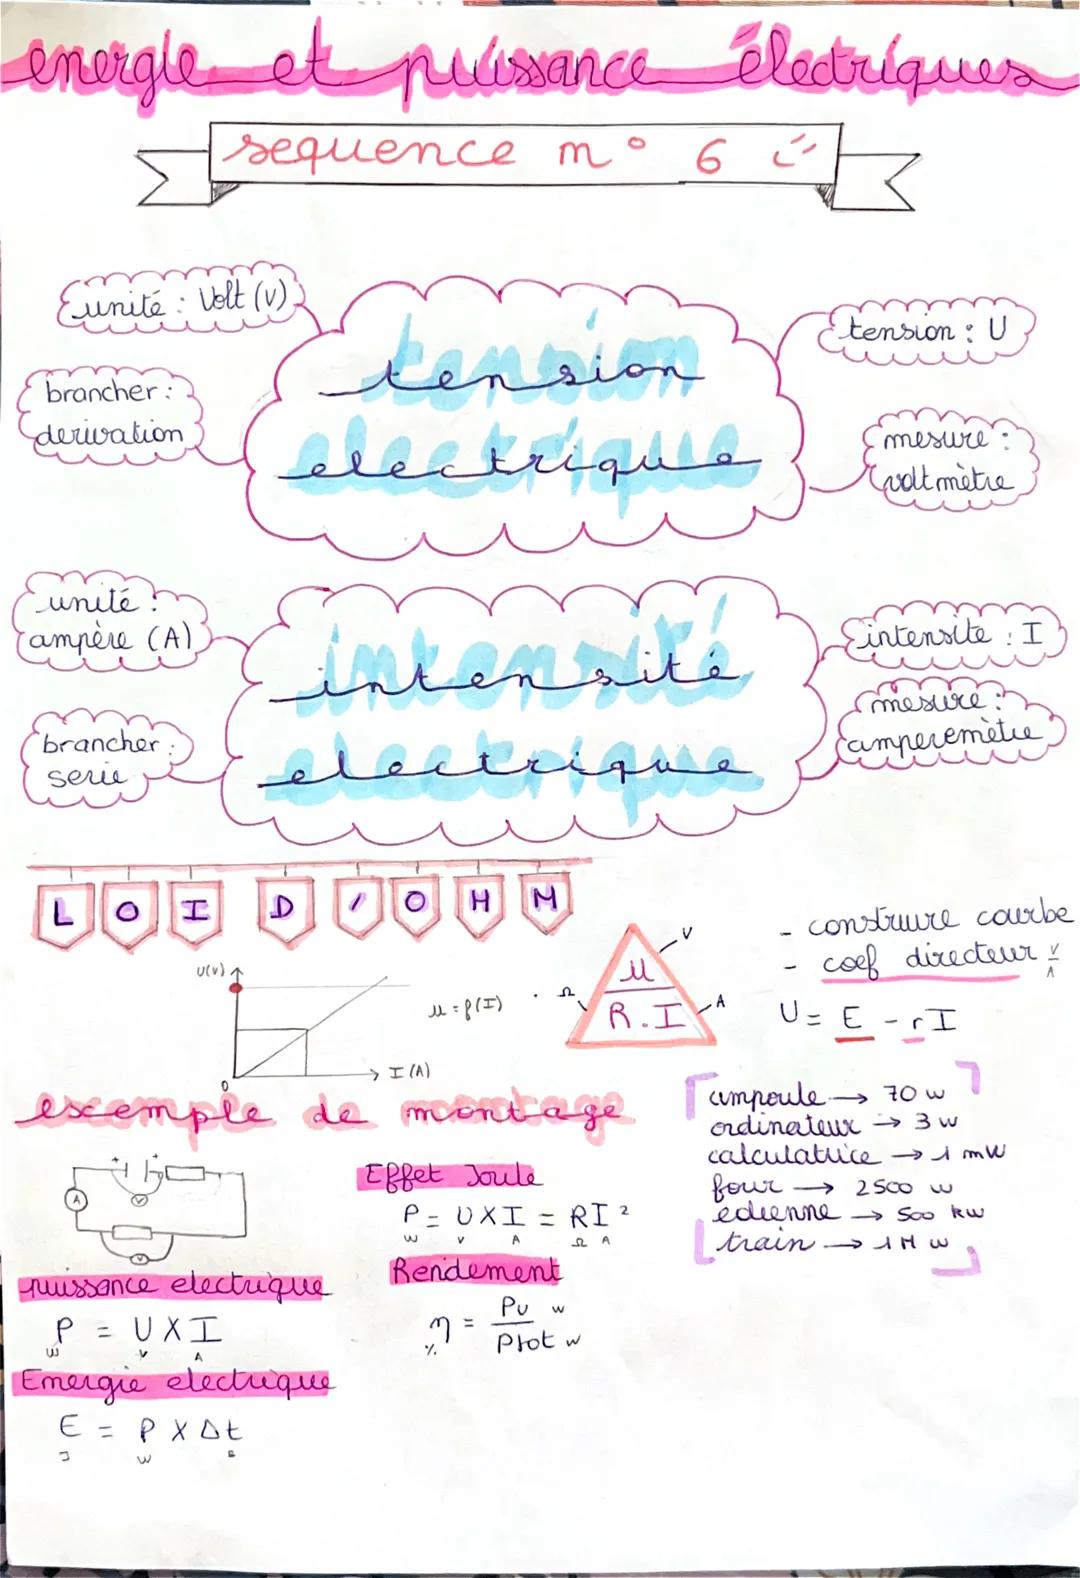 energie et puissance électriques
sequence n° 6
unité : Volt (V)
tension : U
brancher :
derivation
tension
electrique
mesure :
voltmètre
unité :
ampère (A)
intensité : I
intensité
electrique
mesure :
amperemètre
brancher :
serie
LOI D'OHM
- construire courbe
- coef directeur V/A
U(V)
u = f(I)
I (A)
0
U
R . I
V
Ω
A
U = E - rI
exemple de montage
ampoule → 70 w
ordinateur → 3 w
calculatrice → 1 mW
four → 2500 w
eolienne → 500 kw
train → 1 M w
+ -
A
V
V
Effet Joule
P = U X I = RI²
W V A Ω A
Rendement
η = Pu w
% Ptot w
puissance electrique
P = U X I
W V A
Energie electrique
E = P X Δt
J W s